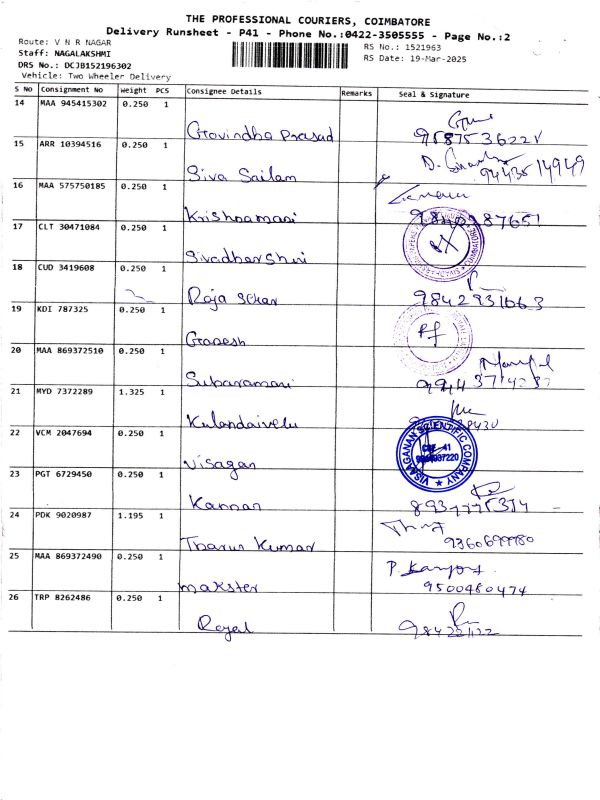 THE PROFESSIONAL COURIERS, COIMBATORE
Delivery Runsheet - P41 - Phone No.:0422-3505555 - Page No.:2
Route: V N R NAGAR
RS No.: 1521963
Staff: NAGALAKSHMI
RS Date: 19-Mar-2025
DRS No.: DCJB152196302
Vehicle: Two Wheeler Delivery
S No Consignment No Weight PCS Consignee Details Remarks Seal & Signature
14 MAA 945415302 0.250 1
Govindha Prasad
15 ARR 10394516 0.250 1
Siva Sailam
16 MAA 575750185 0.250 1
Krishnamani
17 CLT 30471084 0.250 1
Sivadharshni
18 CUD 3419608 0.250 1
Raja Sekar 9842931663
19 KDI 787325 0.250 1
Ganesh
20 MAA 869372510 0.250 1
Subaramani
21 MYD 7372289 1.325 1
Kulandaivelu
22 VCM 2047694 0.250 1
VISAGANAN SCIENTIFIC COMPANY
CBE 41
Visagan
23 PGT 6729450 0.250 1
Kannan
24 PDK 9020987 1.195 1
Tharun Kumar 9360699980
25 MAA 869372490 0.250 1
makster 9500480474
26 TRP 8262486 0.250 1
Royal